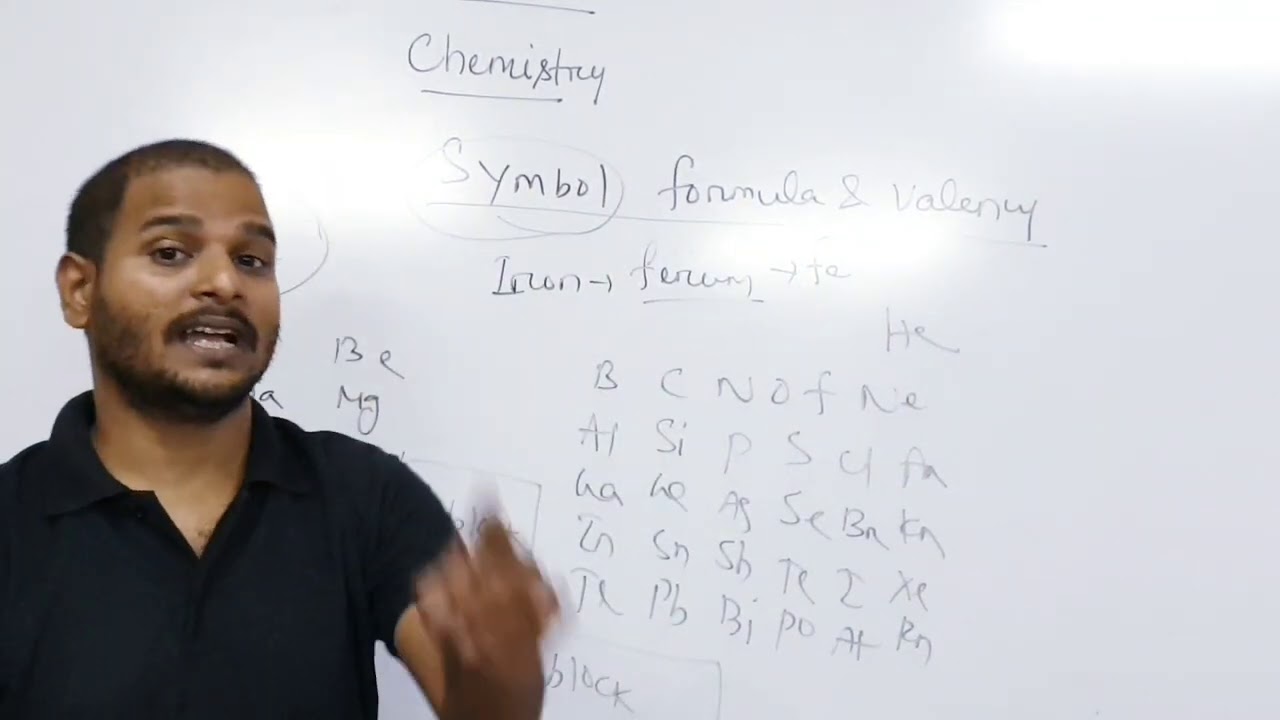 Chemistry
Symbol formula & Valency
Iron → ferum → fe
He
Be B C N O f Ne
Mg Al Si P S Cl
Ga Ge Se Br Kr
In Sn Sb Te I Xe
Pb Bi Po At Rn
block
block